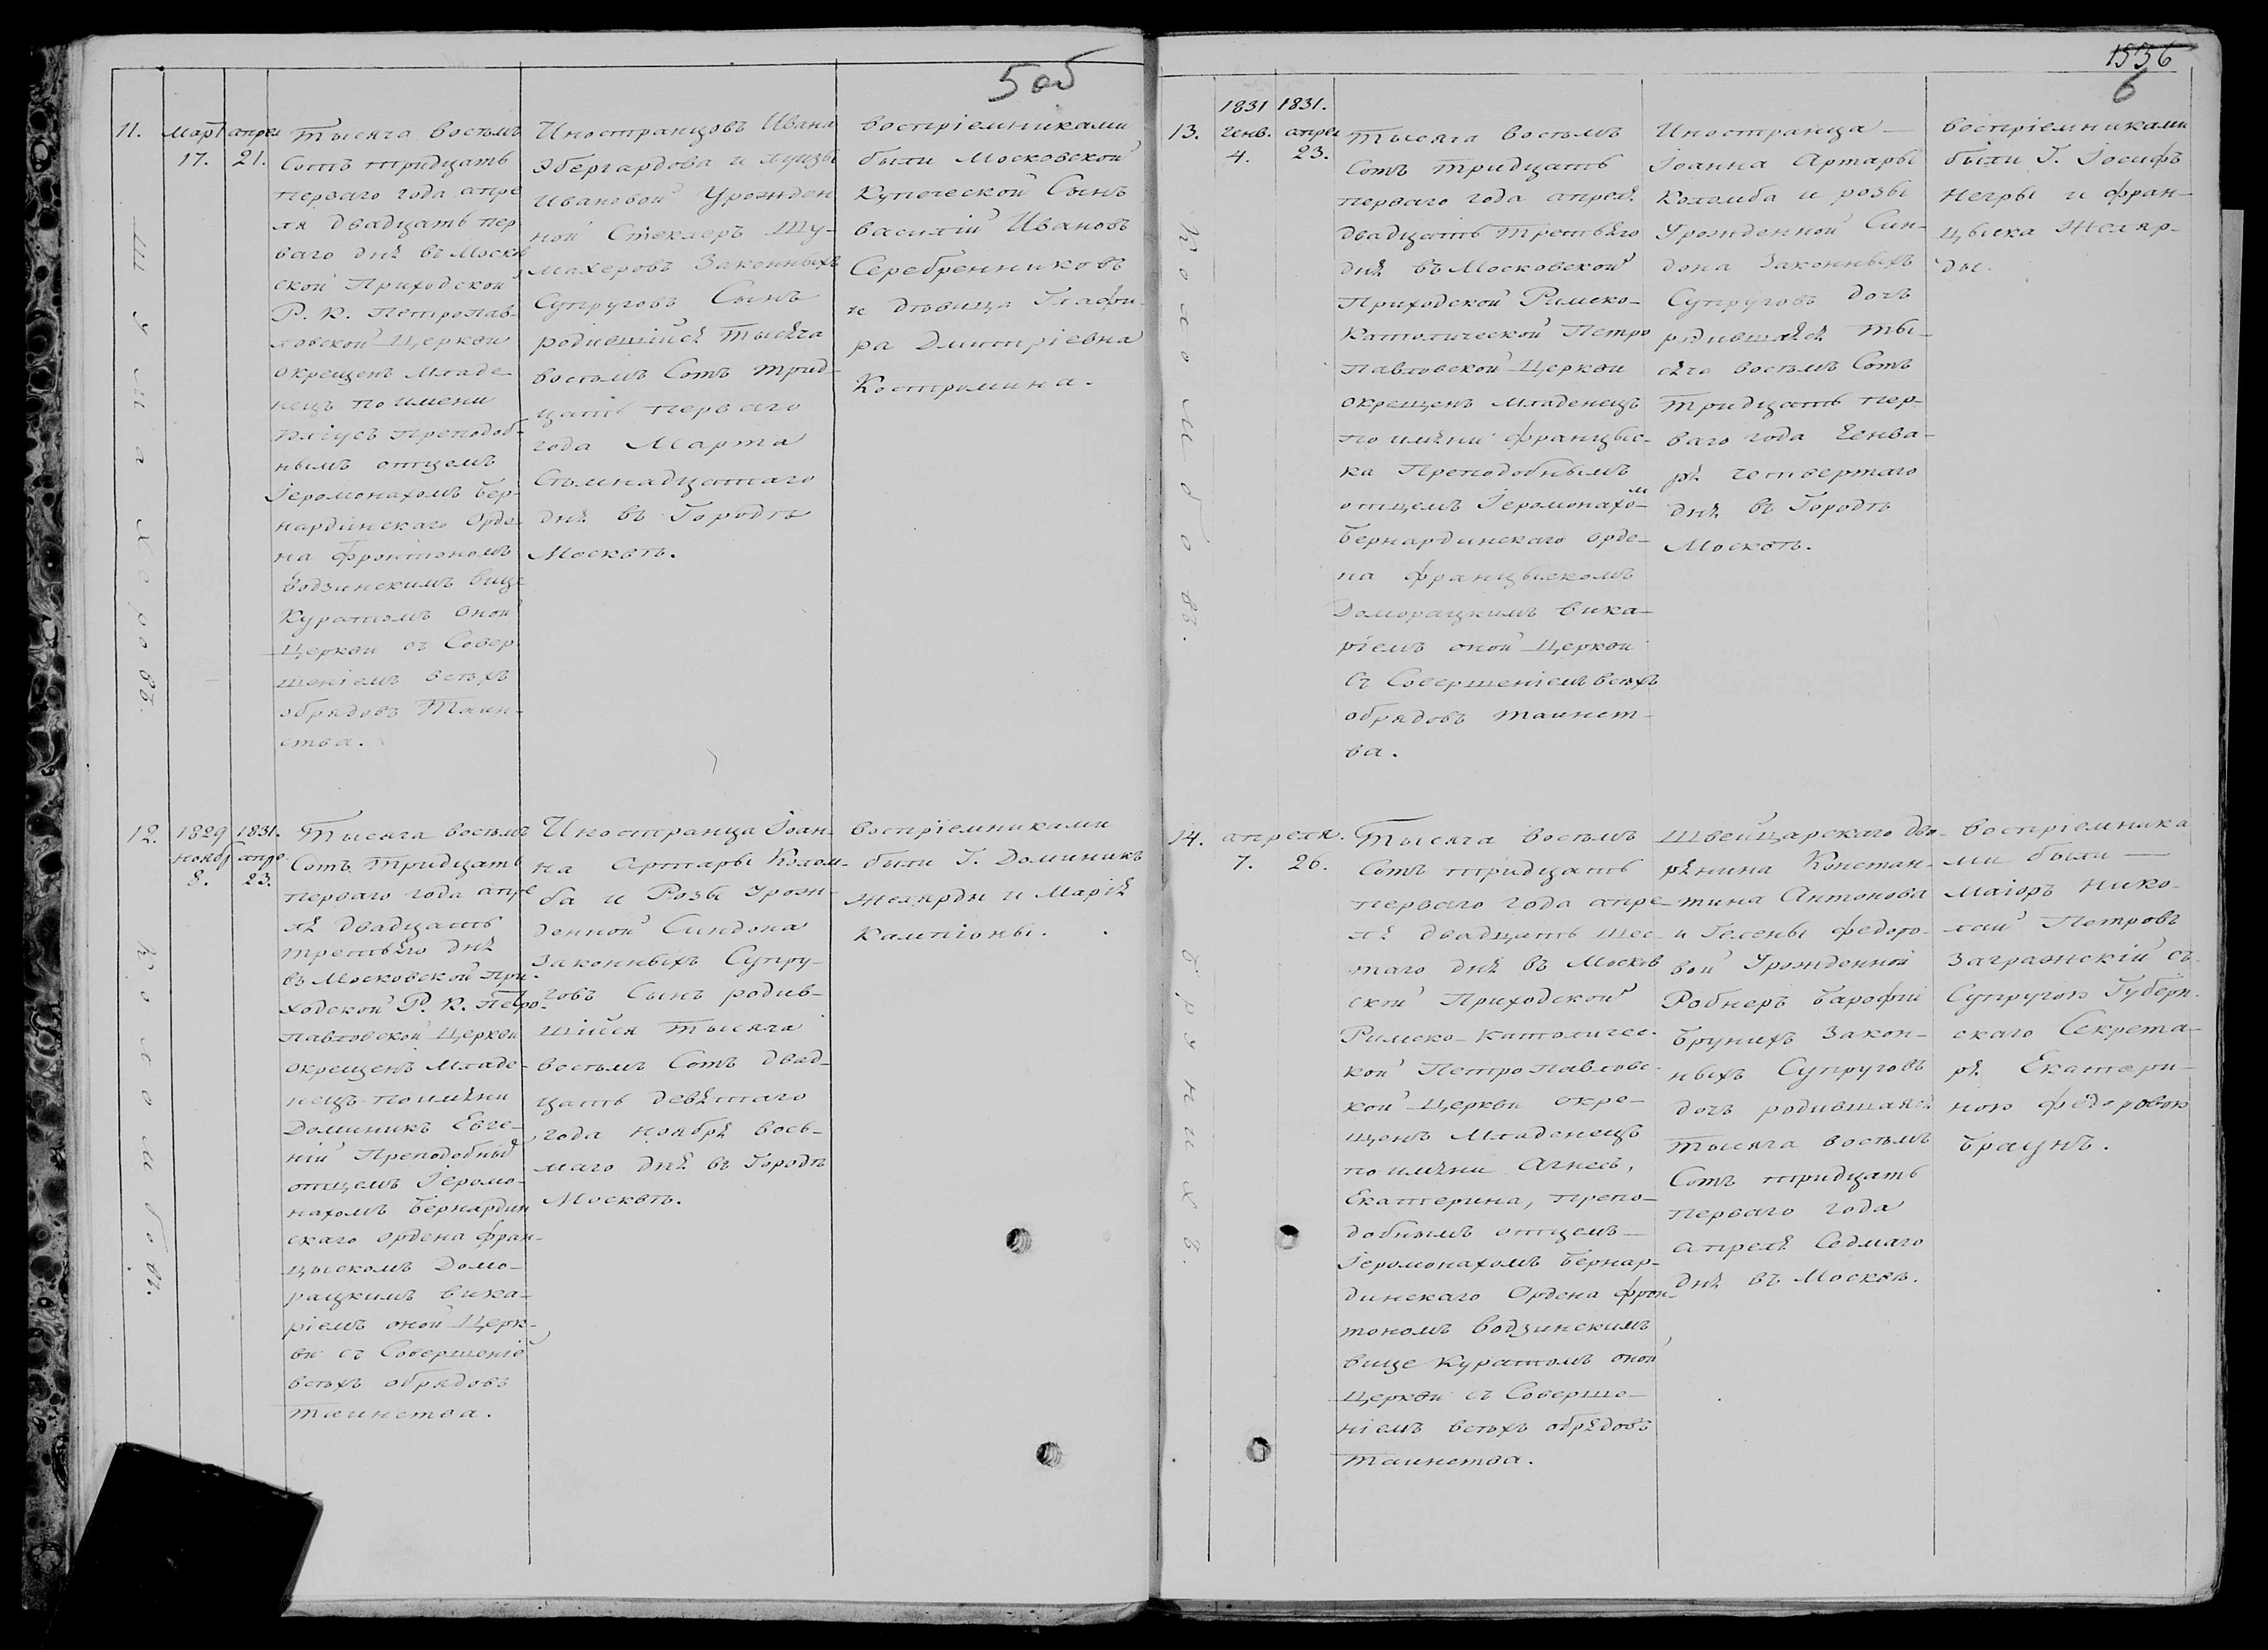 5 об
11.
Март
17.
апрел
21.
Шумахеровъ.
Тысяча восемь
Сотъ тридцать
перваго года апре
ля двадцать пер
ваго дня въ Москв
ской Приходской
Р. К. Петропав-
ловской Церкви
окрещенъ Младе
нецъ по имени
Юліусъ Преподоб-
нымъ отцемъ
Іеромонахомъ бер-
нардинскаго Орде-
на Фронтономъ
Водзинскимъ вице
Куратомъ оной
Церкви съ Совер
шеніемъ всѣхъ
обрядовъ Таин-
ства.
Иностранцовъ Ивана
Эбергардова и Луизы
Ивановой Урожден
ной Стеклеръ Шу-
махеровъ Законныхъ
Супруговъ Сынъ
родившійся Тысяча
восемь Сотъ трид-
цать перваго
года Марта
Семнадцатаго
дня въ Городѣ
Москвѣ.
воспріемниками
были Московской
Купеческой Сынъ
василій Ивановъ
Серебренниковъ
и дѣвица Глафи-
ра Дмитріевна
Костромина.
12.
1829
нояб
8.
1831.
апре.
23.
Коломбовъ.
Тысяча восемь
Сотъ Тридцать
перваго года апре
ля двадцать
третьяго дня
въ Московской При-
ходской Р. К. Петро-
павловской Церкви
окрещенъ Младе-
нецъ по имяни
Доминикъ Евге-
ній Преподобный
отцемъ Іеромо-
нахомъ Бернардин
скаго ордена Фран-
цыскомъ Домо-
рацкимъ вика-
ріемъ оной Церк-
ви съ Совершеніе
всѣхъ обрядовъ
таинства.
Иностранца Іоан-
на Артары Колом-
ба и Розы Урож-
денной Синдона
Законныхъ Супру-
говъ Сынъ родив-
шійся тысяча
восемь Сотъ двад-
цать девятаго
года ноября вось-
маго дня въ Городѣ
Москвѣ.
воспріемниками
были Г. Доминикъ
Желярди и Марія
Кампіоны.
1536
6
13.
1831
генв.
4.
1831.
апрел
23.
Коломбовъ.
Тысяча восемь
Сотъ Тридцать
перваго года апреля
двадцать Третьяго
дня въ Московской
Приходской Римско-
Католической Петро
павловской Церкви
окрещенъ младенецъ
по имяни францыс-
ка Преподобнымъ
отцемъ Іеромонахо-м
Бернардинскаго орде-
на францыскомъ
Доморацкимъ вика-
ріемъ оной Церкви
съ Совершеніемъ всѣхъ
обрядовъ таинст-
ва.
Иностранца —
Іоанна Артары
Коломба и розы
Урожденной Син-
дона Законныхъ
Супруговъ дочь
родившаяся ты-
сяча восемь Сотъ
Тридцать пер-
ваго года Генва-
ря четвертаго
дня въ Городѣ
Москвѣ.
воспріемниками
были Г. Іосифъ
Негры и фран-
цыска Желяр-
ды.
14.
апреля.
7.
26.
Бруниχъ.
Тысяча восемь
Сотъ тридцать
перваго года апре-
ля двадцать шес-
таго дня въ Москов
ской Приходской
Римско-Католичес-
кой Петропавловс-
кой Церкви окре-
щенъ Младенецъ
по имяни Агнесъ,
Екатерина, препо-
добнымъ отцемъ —
Іеромонахомъ Бернар-
динскаго Ордена Фрон-
тономъ Водзинскимъ
вице Куратомъ оной
Церкви съ Соверше-
ніемъ всѣхъ обрядовъ
Таинства.
Швейцарскаго дво-
рянина Констан-
тина Антонова
и Гелены федоро-
вой Урожденной
Робнеръ Барофіи
Брунихъ Закон-
ныхъ Супруговъ
дочь родившаяся
тысяча восемь
Сотъ тридцать
перваго года
апреля Седмаго
дня въ Москвѣ.
воспріемника
ми были —
маіоръ Нико-
лай Петровъ
Загражскій съ
Супругою Губерн-
скаго Секрета-
ря Екатери-
ною федоровою
Браунъ.